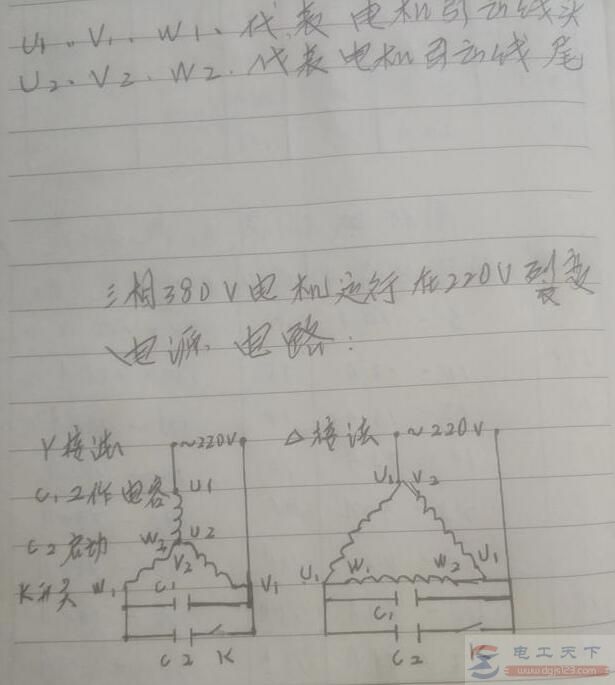 U1、V1、W1、代表电机引动线头
U2、V2、W2、代表电机引动线尾
三相380V电机运行在220V
变
电源、电路:
Y接法
~220V
△接法
~220V
C1工作电容
U1
U1
V2
C2启动
W2
U2
V2
K开关
W1
C1
V1
U1
W1
W2
U1
C1
C2
K
C2
K
电工天下
www.dgjs123.com